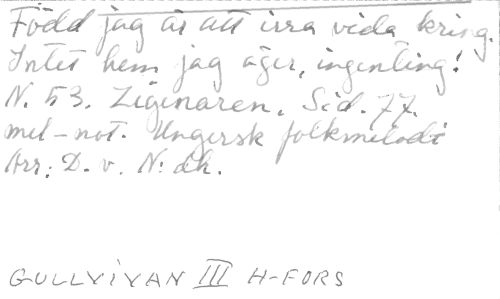 Född jag är att irra vida kring.
Intet hem jag äger, ingenting!
N. 53. Zigenaren. Sid. 77.
mel-not. Ungersk folkmelodi
Arr: D. v. N:dh.
GULLVIVAN III H-FORS